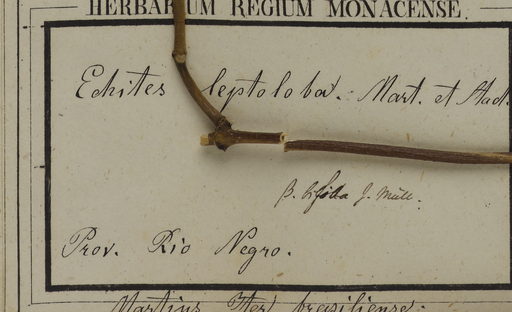 HERBARIUM REGIUM MONACENSE.
Echites leptoloba. Mart. et Stad.
β. bifida J. Müll.
Prov. Rio Negro.
Martius Iter brasiliense.